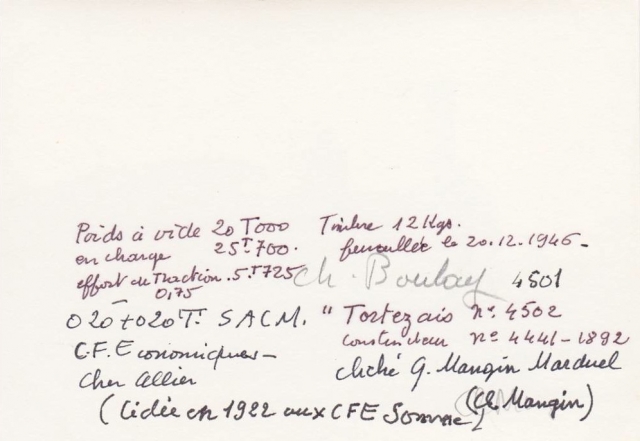 Poids à vide 20 T000 Timbre 12 Kgs.
en charge 25T700. ferraillée le 20.12.1946-
effort de Traction. 5.T725 Ch. Boulay 4501
0,75
020+020T. SACM. " Tortezais n° 4502
constructeur n° 4441-1892
C.F. Economiques-
Cher Allier cliché G. Mangin Marduel
(Cédée en 1922 aux CFE Somme) (Ch. Mangin)